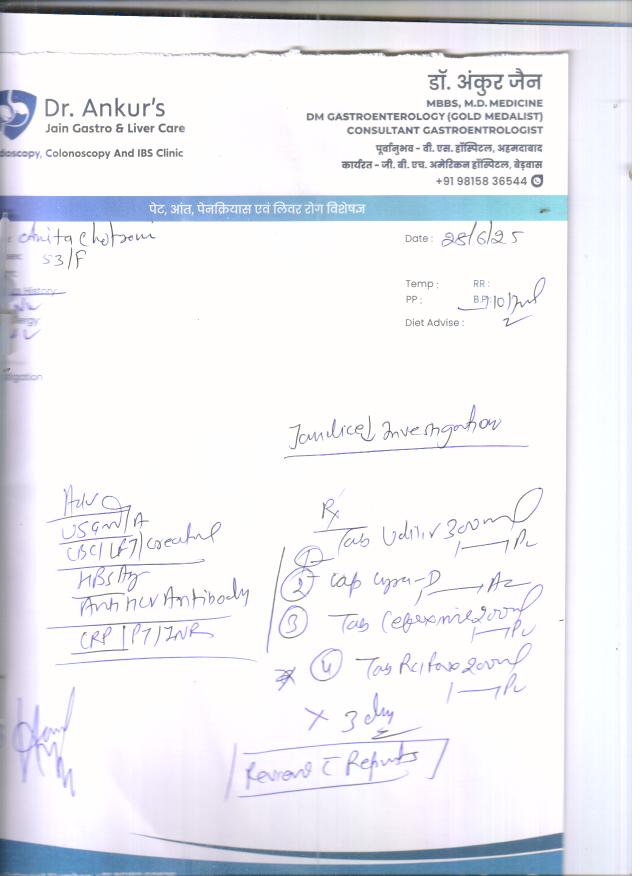 Dr. Ankur's
Jain Gastro & Liver Care
doscopy, Colonoscopy And IBS Clinic
डॉ. अंकुर जैन
MBBS, M.D. MEDICINE
DM GASTROENTEROLOGY (GOLD MEDALIST)
CONSULTANT GASTROENTROLOGIST
पूर्वानुभव - वी. एस. हॉस्पिटल, अहमदाबाद
कार्यरत - जी. बी. एच. अमेरिकन हॉस्पिटल, बेड़वास
+91 98158 36544
पेट, आंत, पेनक्रियास एवं लिवर रोग विशेषज्ञ
Anita
53/F
Date : 28/6/25
History
lergy
tigation
Temp : RR :
PP : B.P.:
Diet Advise :
Investigation
Adv
USG W/A
CBC/LFT/
HBsAg
Anti HCV Antibody
CRP/PT/INR
Rx
1 Tab Udiliv 300
2 Cap -D
3 Tab 200
4 Tab 200
x 3 day
Review c Reports